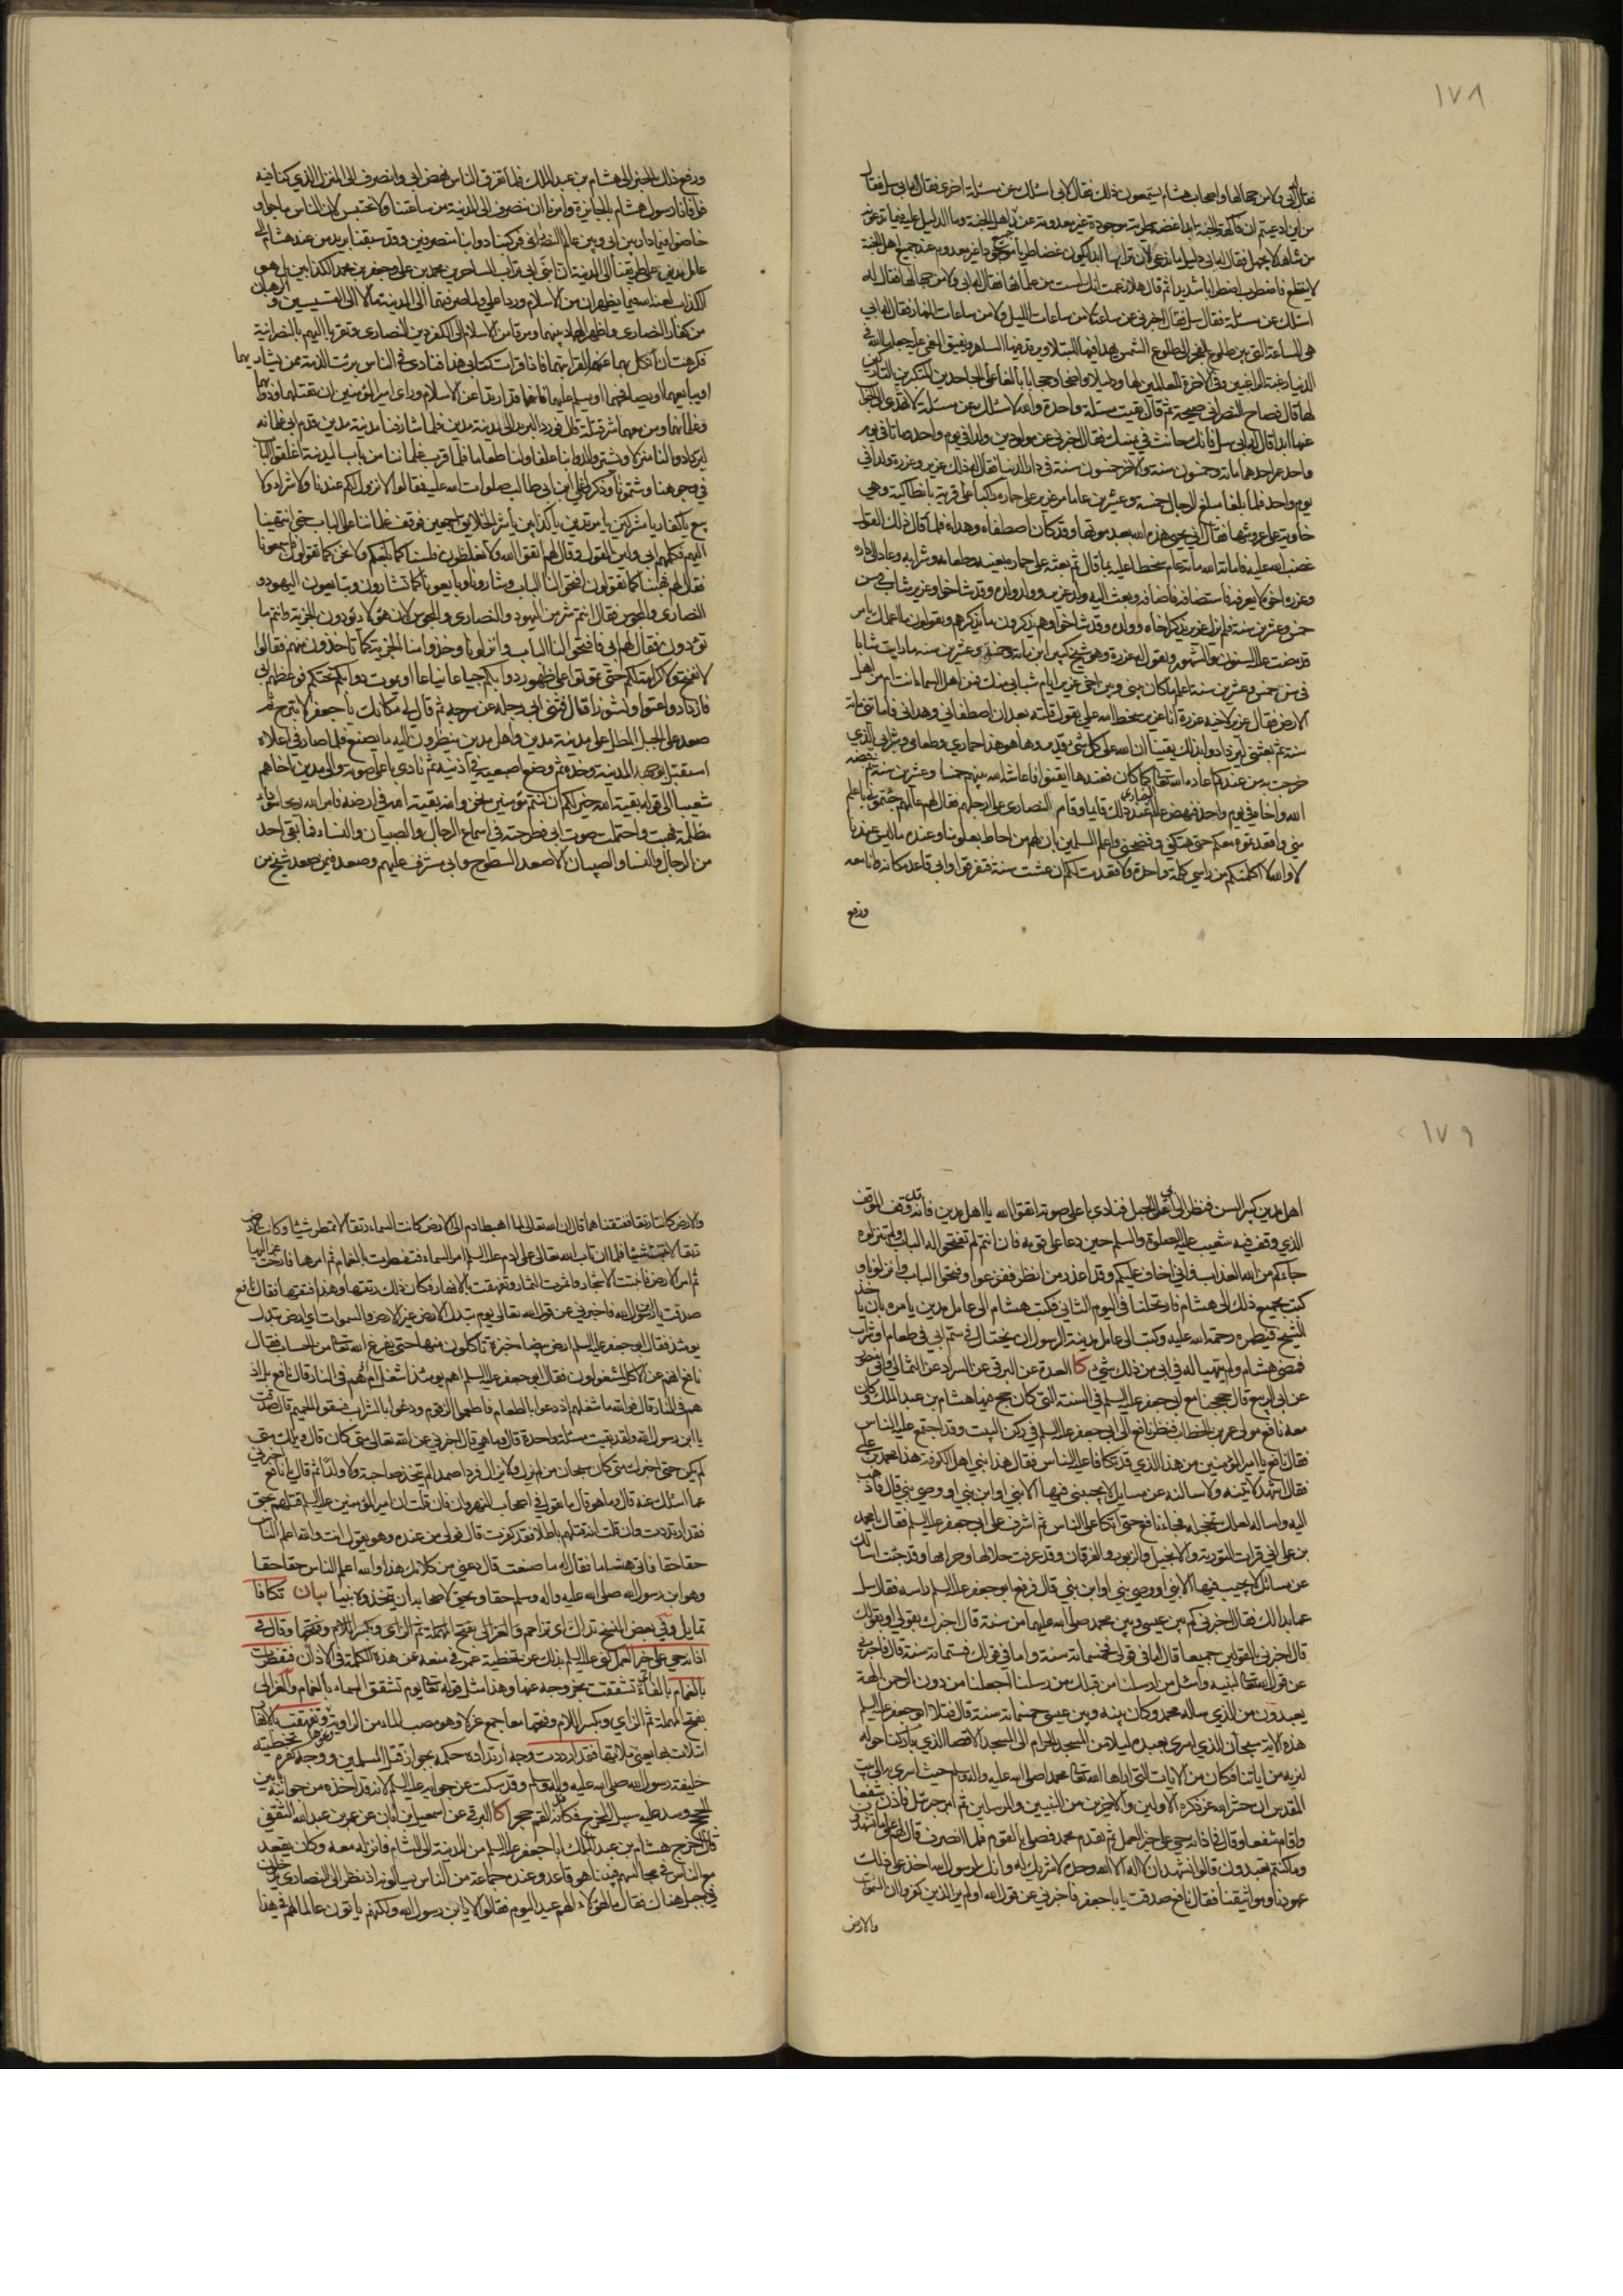 ١٧٨
فقال ابي ولا من جهالها واصحاب هشام يسمعون ذلك فقال لابي اسئلك عن مسئلة اخرى فقال له ابي سل فقال
من اين ادعيتم ان فاكهة الجنة ابدا غضة طرية موجودة غير معدومة عند اهل الجنة وما الدليل عليه فيما تدعونه
من شاهد لا يجهل فقال له ابي دليل ما ندعي ان ترابنا ابدا يكون غضا طريا موجودا غير معدوم عند جميع اهل الجنة
لا ينقطع فاضطرب اضطرابا شديدا ثم قال هلا زعمت انك لست من علمائها فقال له ابي ولا من جهالها فقال له
اسئلك عن مسئلة فقال سل فقال اخبرني عن ساعة لا من ساعات الليل ولا من ساعات النهار فقال له ابي
هي الساعة التي بين طلوع الفجر الى طلوع الشمس يهدا فيها المبتلا ويرقد فيها الساهر ويفيق المغمى عليه جعلها الله في
الدنيا رغبة للراغبين وفي الاخرة للعاملين لها ودليلا واضحا وحجابا بالغا على الجاحدين المنكرين التاركين
لها قال فصاح النصراني صيحة ثم قال بقيت مسئلة واحدة والله لاسئلك عن مسئلة لا تهتدي الى الجواب
عنها ابدا قال له ابي سل فانك حانث في يمينك فقال اخبرني عن مولودين ولدا في يوم واحد وماتا في يوم
واحد عمر احدهما مائة وخمسون سنة والاخر خمسون سنة في دار الدنيا فقال له ذلك عزير وعزرة ولدا في
يوم واحد فلما بلغا مبلغ الرجال خمسة وعشرين عاما مر عزير على حماره راكبا على قرية بانطاكية وهي
خاوية على عروشها فقال انى يحيي هذه الله بعد موتها وقد كان اصطفاه وهداه فلما قال ذلك القول
غضب الله عليه فاماته الله مائة عام سخطا عليه بما قال ثم بعثه على حماره بعينه وطعامه وشرابه وعاد الى داره
وعزرة اخوه لا يعرفه فاستضافه فاضافه وبعث اليه ولد عزرة وولد ولده وقد شاخوا وعزير شاب في سن
خمس وعشرين سنة فلم يزل عزير يذكر اخاه وولده وقد شاخوا وهم يذكرون ما يذكرهم ويقولون ما اعلمك بامر
قد مضت عليه السنون والشهور ويقول له عزرة وهو شيخ كبير ابن مائة وخمسة وعشرين سنة ما رايت شابا
في سن خمس وعشرين سنة اعلم بما كان بيني وبين اخي عزير ايام شبابي منك فمن اهل السماء انت ام من اهل
الارض فقال عزير لاخيه عزرة انا عزير سخط الله علي بقول قلته بعد ان اصطفاني وهداني فاماتني مائة
سنة ثم بعثني لتزدادوا بذلك يقينا ان الله على كل شي قدير وها هو هذا حماري وطعامي وشرابي الذي
خرجت به من عندكم اعاده الله تعالى كما كان فعندها ايقنوا فاعاشه الله بينهم خمسا وعشرين سنة ثم قبضه
الله واخاه في يوم واحد فنهض عالم النصارى عند ذلك قايما وقام النصارى على ارجلهم فقال لهم عالمهم جئتموني باعلم
مني واقعدتموه معكم حتى هتكني وفضحني واعلم المسلمين بان لهم من احاط بعلومنا وعنده ما ليس عندنا
لا والله لا اكلمتكم من راسي كلمة واحدة ولا قعدت لكم ان عشت سنة فتفرقوا وابي قاعد مكانه وانا معه
ورفع
ورفع ذلك الخبر الى هشام بن عبد الملك فلما تفرق الناس نهض ابي وانصرف الى المنزل الذي كنا فيه
فوافانا رسول هشام بالجايزة وامرنا ان ننصرف الى المدينة من ساعتنا ولا نحتبس لان الناس ماجوا و
خاضوا فيما دار بين ابي وبين عالم النصراني فركبنا دوابنا منصرفين وقد سبقنا بريد من عند هشام الى
عامل مدين على طريقنا الى المدينة ان ابني ابي تراب الساحرين محمد بن علي وجعفر بن محمد الكذابين بل هو
الكذاب لعنه الله فيما يظهران من الاسلام وردا علي ولما صرفتهما الى المدينة مالا الى القسيسين والرهبان
من كفار النصارى واظهرا لهما دينهما ومرقا من الاسلام الى الكفر دين النصارى وتقربا اليهم بالنصرانية
فكرهت ان انكل بهما لقرابتهما فاذا قرات كتابي هذا فناد في الناس برئت الذمة ممن يشاريهما
او يبايعهما او يصافحهما او يسلم عليهما فانهما قد ارتدا عن الاسلام وراى امير المؤمنين ان تقتلهما ودوابهما
وغلمانهما ومن معهما شر قتلة قال فورد البريد الى مدينة مدين فلما شارفنا مدينة مدين قدم ابي غلمانه
ليرتادوا لنا منزلا ويشتروا لدوابنا علفا ولنا طعاما فلما قرب غلماننا من باب المدينة اغلقوا الباب
في وجوهنا وشتمونا وذكروا علي بن ابي طالب صلوات الله عليه فقالوا لا نزول لكم عندنا ولا شراء ولا
بيع يا كفار يا مشركين يا مرتدين يا كذابين يا شر الخلايق اجمعين فوقف غلماننا على الباب حتى انتهينا
اليهم فكلمهم ابي ولين لهم القول وقال لهم اتقوا الله ولا تغلظوا فلسنا كما بلغكم ولا نحن كما تقولون فاسمعونا
فقال لهم فهبنا كما تقولون افتحوا لنا الباب وشارونا وبايعونا كما تشارون وتبايعون اليهود و
النصارى والمجوس فقالوا انتم شر من اليهود والنصارى والمجوس لان هؤلاء يؤدون الجزية وانتم ما
تؤدون فقال لهم ابي فافتحوا لنا الباب وانزلونا وخذوا منا الجزية كما تاخذون منهم فقالوا
لا نفتح ولا كرامة لكم حتى تموتوا على ظهور دوابكم جياعا نياعا او تموت دوابكم تحتكم فوعظهم ابي
فازدادوا عتوا ونشوزا قال فثنى ابي رجله عن سرجه ثم قال لي مكانك يا جعفر لا تبرح ثم
صعد على الجبل المطل على مدينة مدين واهل مدين ينظرون اليه ما يصنع فلما صار في اعلاه
استقبل بوجهه المدينة وحده ثم وضع اصبعيه في اذنيه ثم نادى باعلى صوته والى مدين اخاهم
شعيبا الى قوله بقية الله خير لكم ان كنتم مؤمنين نحن والله بقية الله في ارضه فامر الله ريحا سوداء
مظلمة فهبت واحتملت صوت ابي فطرحته في اسماع الرجال والصبيان والنساء فما بقي احد
من الرجال والنساء والصبيان الا صعد السطوح وابي مشرف عليهم وصعد فيمن صعد شيخ من
١٧٩
اهل مدين كبير السن فنظر الى ابي على الجبل فنادى باعلى صوته اتقوا الله يا اهل مدين فانه قد وقف الموقف
الذي وقف فيه شعيب عليه الصلوة والسلم حين دعا على قومه فان انتم لم تفتحوا له الباب ولم تنزلوه
جاءكم من الله العذاب فاني اخاف عليكم وقد اعذر من انذر ففزعوا وفتحوا الباب وانزلونا و
كتب بجميع ذلك الى هشام فارتحلنا في اليوم الثاني فكتب هشام الى عامل مدين يامره بان ياخذ
الشيخ فيطمره رحمة الله عليه وكتب الى عامل مدينة الرسول ان يحتال في سم ابي في طعام او شراب
فمضى هشام ولم يتهيا له في ابي من ذلك شي كا العدة عن البرقي عن السراد عن الثمالي وابي منصور
عن ابي الربيع قال حججنا مع ابي جعفر عليه السلم في السنة التي كان حج فيها هشام بن عبد الملك وكان
معه نافع مولى عمر بن الخطاب فنظر نافع الى ابي جعفر عليه السلم في ركن البيت وقد اجتمع عليه الناس
فقال نافع يا امير المؤمنين من هذا الذي قد تكافا عليه الناس فقال هذا نبي اهل الكوفة هذا محمد بن علي
فقال اشهد لآتينه ولاسالنه عن مسايل لا يجيبني فيها الا نبي او ابن نبي او وصي نبي قال فاذهب
اليه واساله لعلك تخجله فجاء نافع حتى اتكا على الناس ثم اشرف على ابي جعفر عليه السلم فقال يا محمد
بن علي اني قرات التورية والانجيل والزبور والفرقان وقد عرفت حلالها وحرامها وقد جئت اسالك
عن مسائل لا يجيب فيها الا نبي او وصي نبي او ابن نبي قال فرفع ابو جعفر عليه السلم راسه فقال سل
عما بدا لك فقال اخبرني كم بين عيسى وبين محمد صلى الله عليهما من سنة قال اخبرك بقولي او بقولك
قال اخبرني بالقولين جميعا قال اما في قولي فخمسمائة سنة واما في قولك فستمائة سنة قال فاخبرني
عن قول الله تعالى لنبيه واسئل من ارسلنا من قبلك من رسلنا اجعلنا من دون الرحمن الهة
يعبدون من الذي ساله محمد وكان بينه وبين عيسى خمسمائة سنة قال فتلا ابو جعفر عليه السلم
هذه الاية سبحان الذي اسرى بعبده ليلا من المسجد الحرام الى المسجد الاقصا الذي باركنا حوله
لنريه من اياتنا فكان من الايات التي اراها الله تعالى محمدا صلى الله عليه واله وسلم حيث اسرى به الى بيت
المقدس ان حشر الله عز ذكره الاولين والاخرين من النبيين والمرسلين ثم امر جبرئيل فاذن شفعا
واقام شفعا وقال في اذانه حي على خير العمل ثم تقدم محمد فصلى بالقوم فلما انصرف قال لهم على ما تشهدون
وما كنتم تعبدون قالوا نشهد ان لا اله الا الله وحده لا شريك له وانك رسول الله اخذ على ذلك
عهودنا ومواثيقنا فقال نافع صدقت يا ابا جعفر فاخبرني عن قول الله اولم ير الذين كفروا ان السموات
والارض
والارض كانتا رتقا ففتقناهما قال ان الله تعالى لما اهبط ادم الى الارض كانت السماء رتقا لا تمطر شيئا وكانت الارض
رتقا لا تنبت شيئا فلما ان تاب الله تعالى على ادم عليه السلم امر السماء فتفطرت بالغمام ثم امرها فارخت عزاليها
ثم امر الارض فانبتت الاشجار واثمرت الثمار وتفهقت بالانهار فكان ذلك رتقها وهذا فتقها فقال نافع
صدقت يا ابن رسول الله فاخبرني عن قول الله تعالى يوم تبدل الارض غير الارض والسموات اي ارض تبدل
يومئذ فقال ابو جعفر عليه السلم ارض بيضاء خبزة تاكلون منها حتى يفرغ الله تعالى من الحساب فقال
نافع انهم عن الاكل لمشغولون فقال ابو جعفر عليه السلم اهم يومئذ اشغل ام هم في النار قال نافع بل اذ
هم في النار قال فوالله ما شغلهم اذ دعوا بالطعام فاطعموا الزقوم ودعوا بالشراب فسقوا الحميم قال صدقت
يا ابن رسول الله ولقد بقيت مسئلة واحدة قال وما هي قال اخبرني عن الله تعالى متى كان قال ويلك متى
لم يكن حتى اخبرك متى كان سبحان من لم يزل ولا يزال فردا صمدا لم يتخذ صاحبة ولا ولدا ثم قال يا نافع اخبرني
عما اسئلك عنه قال وما هو قال ما تقول في اصحاب النهروان فان قلت ان امير المؤمنين عليه السلم قتلهم بحق
فقد ارتددت وان قلت انه قتلهم باطلا فقد كفرت قال فولى من عنده وهو يقول انت والله اعلم الناس
حقا حقا فاتى هشاما فقال له ما صنعت قال دعني من كلامك هذا والله اعلم الناس حقا حقا
وهو ابن رسول الله صلى الله عليه واله وسلم حقا ويحق لاصحابه ان يتخذوه نبيا بيان تكافا
تمايل وفي بعض النسخ تداك اي تزاحم والعزالى بفتح المهملة ثم الزاي وبكسر اللام وفتحها وقال في
اذانه حي على خير العمل كنى عليه السلم بذلك عن تخطية عمر في منعه عن هذه الكلمة في الاذان فتفطرت
بالغمام بالفاء تشققت بخروجه عنها وهذا مثل قوله تعالى يوم تشقق السماء بالغمام والعزالى
بفتح المهملة ثم الزاي وبكسر اللام وفتحها معا جمع عزلاء وهو مصب الماء من الراوية وتفهقت بالانهار
امتلات بها يعني مائها فقد ارتددت وجه ارتداده حكمه بجواز قتل المسلمين ووجه كفره تخطيته
خليفة رسول الله صلى الله عليه واله وسلم وقد سكت عن جوابه عليه السلم لانه قد اخذه من جوانبه بين
الحجج وسد عليه سبيل المخرج فكانه القم حجرا كا البرقي عن اسمعيل بن ابان عن عمر بن عبد الله الثقفي
قال اخرج هشام بن عبد الملك ابا جعفر عليه السلم من المدينة الى الشام فانزله معه وكان يقعد
مع الناس في مجالسهم فبينا هو قاعد وعنده جماعة من الناس يسالونه اذ نظر الى النصارى يدخلون
في جبل هناك فقال ما لهؤلاء الهم عيد اليوم فقالوا لا يا ابن رسول الله ولكنهم ياتون عالما لهم في هذا